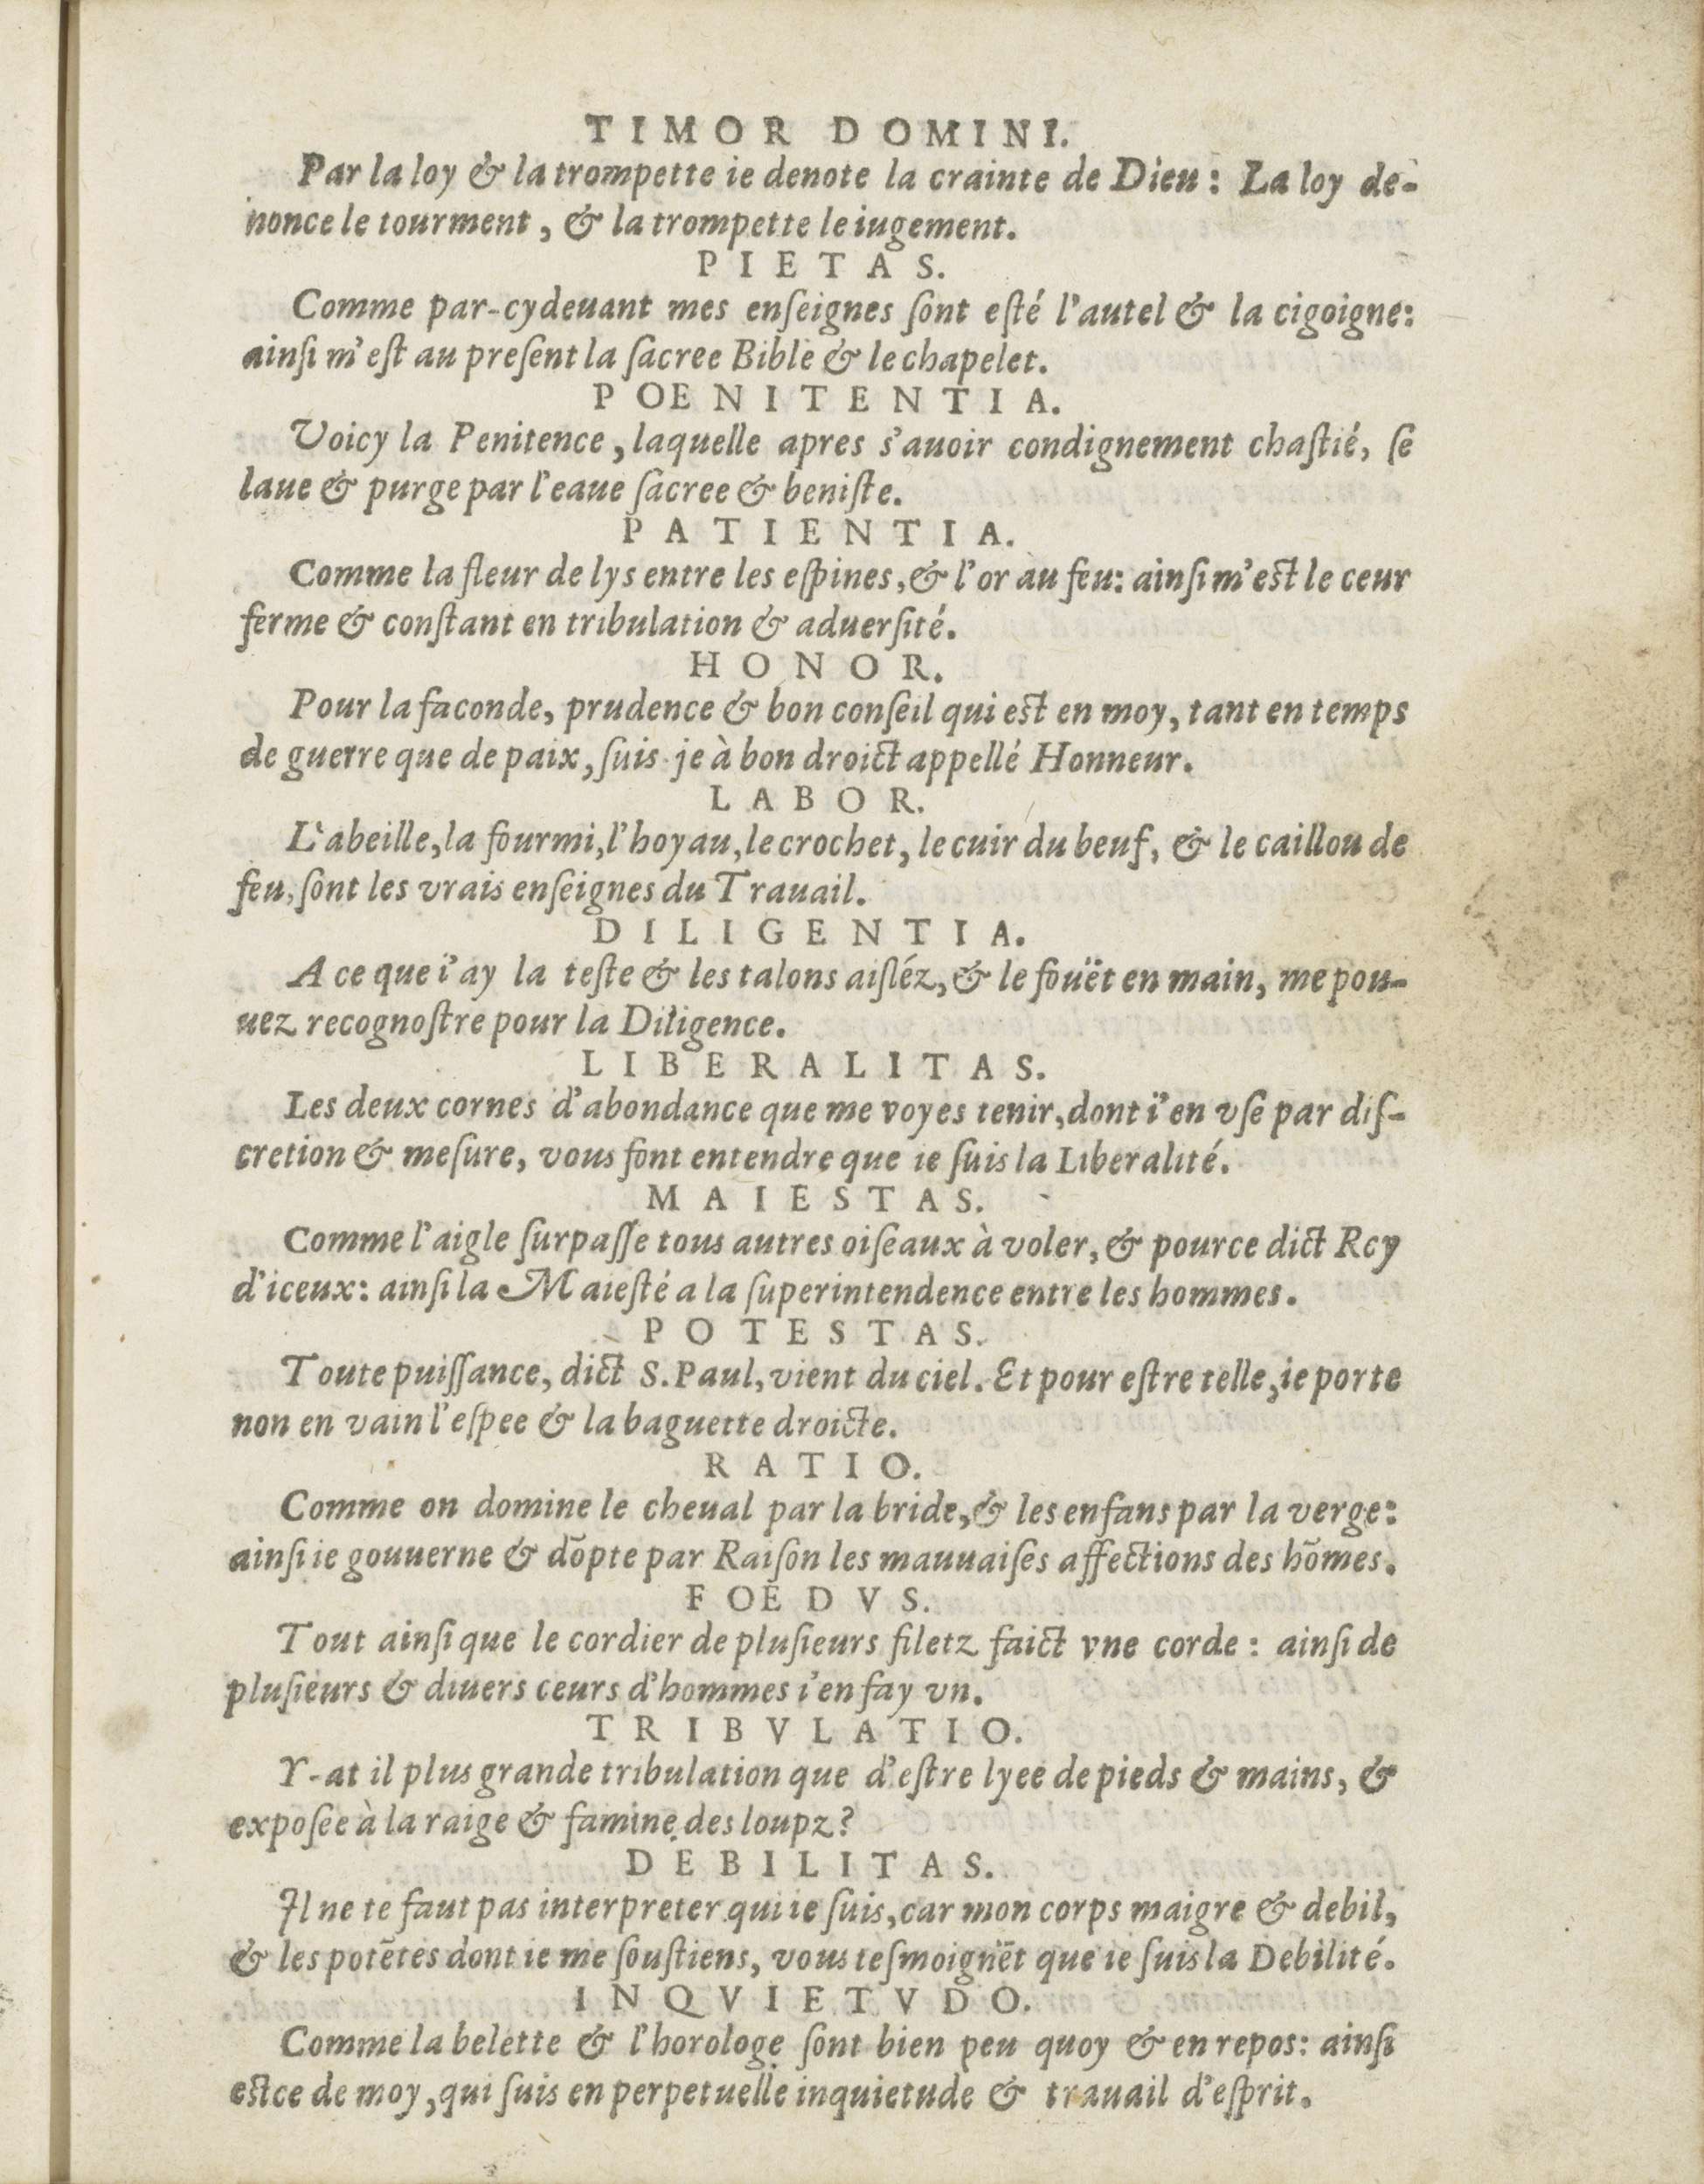 TIMOR DOMINI.
Par la loy & la trompette ie denote la crainte de Dieu: La loy de-
nonce le tourment, & la trompette le iugement.
PIETAS.
Comme par-cydeuant mes enſeignes ſont eſté l'autel & la cigoigne:
ainſi m'eſt au preſent la ſacree Bible & le chapelet.
POENITENTIA.
Voicy la Penitence, laquelle apres s'auoir condignement chaſtié, ſe
laue & purge par l'eaue ſacree & beniſte.
PATIENTIA.
Comme la fleur de lys entre les eſpines, & l'or au feu: ainſi m'eſt le ceur
ferme & conſtant en tribulation & aduerſité.
HONOR.
Pour la faconde, prudence & bon conſeil qui eſt en moy, tant en temps
de guerre que de paix, ſuis-je à bon droict appellé Honneur.
LABOR.
L'abeille, la fourmi, l'hoyau, le crochet, le cuir du beuf, & le caillou de
feu, ſont les vrais enſeignes du Trauail.
DILIGENTIA.
A ce que i'ay la teſte & les talons aiſléz, & le fouët en main, me pou-
uez recognoſtre pour la Diligence.
LIBERALITAS.
Les deux cornes d'abondance que me voyes tenir, dont i'en vſe par diſ-
cretion & meſure, vous font entendre que ie ſuis la Liberalité.
MAIESTAS.
Comme l'aigle ſurpaſſe tous autres oiſeaux à voler, & pource dict Roy
d'iceux: ainſi la Maieſté a la ſuperintendence entre les hommes.
POTESTAS.
Toute puiſſance, dict S. Paul, vient du ciel. Et pour eſtre telle, ie porte
non en vain l'eſpee & la baguette droicte.
RATIO.
Comme on domine le cheual par la bride, & les enfans par la verge:
ainſi ie gouuerne & dōpte par Raiſon les mauuaiſes affections des hōmes.
FOEDVS.
Tout ainſi que le cordier de pluſieurs filetz faict vne corde: ainſi de
pluſieurs & diuers ceurs d'hommes i'en fay vn.
TRIBVLATIO.
Y-at il plus grande tribulation que d'eſtre lyee de pieds & mains, &
expoſee à la raige & famine des loupz?
DEBILITAS.
Il ne te faut pas interpreter qui ie ſuis, car mon corps maigre & debil,
& les potētes dont ie me ſouſtiens, vous teſmoignēt que ie ſuis la Debilité.
INQVIETVDO.
Comme la belette & l'horologe ſont bien peu quoy & en repos: ainſi
eſtce de moy, qui ſuis en perpetuelle inquietude & trauail d'eſprit.